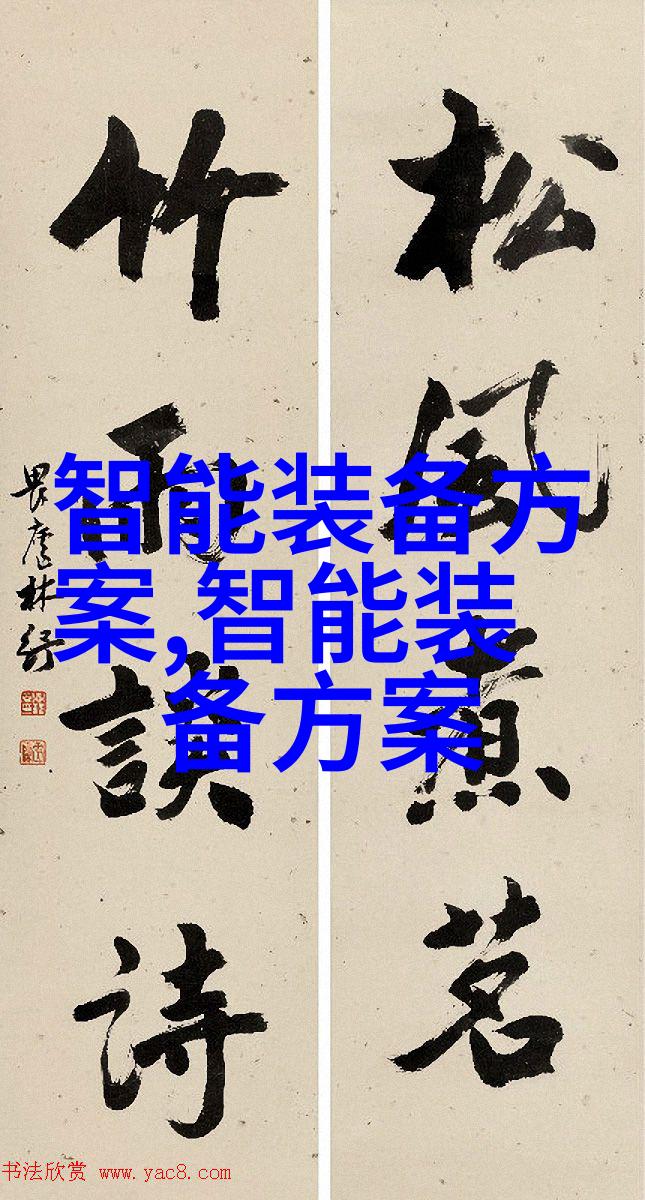 松風煮茗
竹雨談詩
畏廬林紓
智能装备方
案,智能装
备方案
书法欣赏 www.yac8.com